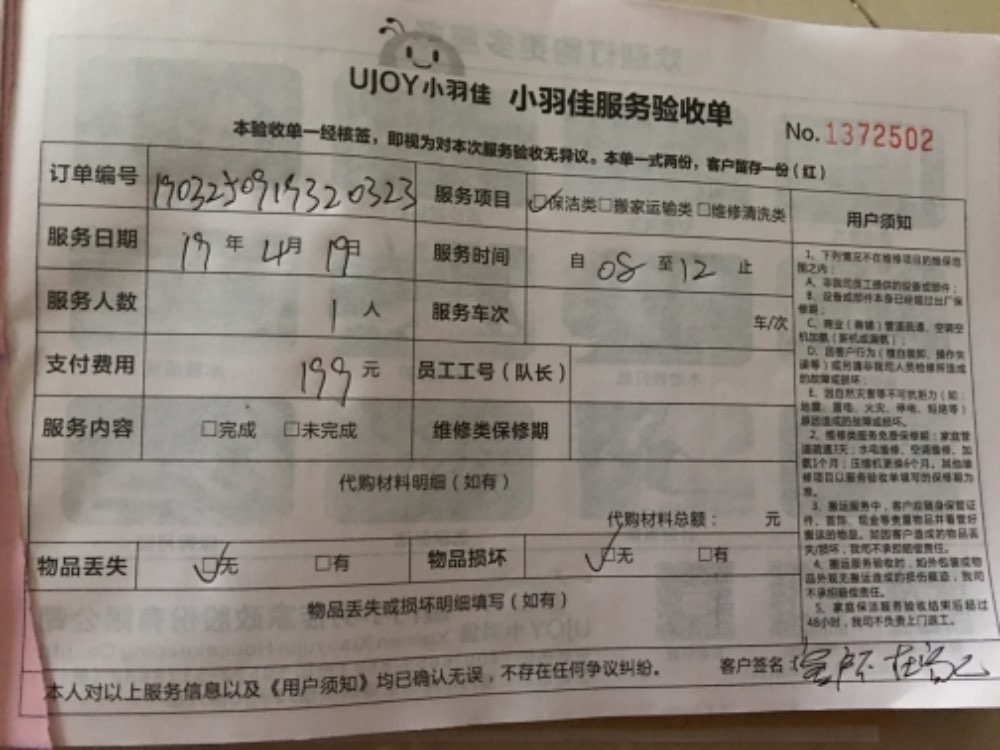 UJOY小羽佳 小羽佳服务验收单
No. 1372502
本验收单一经核签，即视为对本次服务验收无异议。本单一式两份，客户留存一份（红）
订单编号 1903250919320323 服务项目 ☑保洁类□搬家运输类□维修清洗类
服务日期 19年4月19日 服务时间 自08至12止
服务人数 1人 服务车次 车/次
支付费用 199元 员工工号（队长）
服务内容 □完成 □未完成 维修类保修期
代购材料明细（如有）
代购材料总额： 元
物品丢失 ☑无 □有 物品损坏 ☑无 □有
物品丢失或损坏明细填写（如有）
本人对以上服务信息以及《用户须知》均已确认无误，不存在任何争议纠纷。
客户签名：客户不在
用户须知
1、下列情况不在维修项目的维保范
围之内：
A、非我司员工提供的设备或部件；
B、设备或部件本身已经超过出厂保
修期；
C、商业（商铺）管道疏通、空调空
机加氨（新机或漏氨）；
D、因客户行为（擅自装卸、操作失
误等）或另请非我司人员检修所造成
的故障或损坏；
E、因自然灾害等不可抗拒力（如：
地震、雷电、火灾、停电、短路等）
原因造成的故障或损坏。
2、维修类服务免费保修期：家庭管
道疏通3天；水电维修、空调维修、加
氨1个月；压缩机更换6个月。其他维
修项目以服务验收单填写的保修期为
准。
3、搬运服务中，客户应随身保管证
件、首饰、现金等贵重物品并看管好
搬运的物品。如因客户造成的物品丢
失/损坏，我司不承担赔偿责任。
4、搬运服务验收时，如外包装或物
品外观无搬运造成的损伤痕迹，我司
不承担赔偿责任。
5、家庭保洁服务验收结束后超过
48小时，我司不负责上门返工。